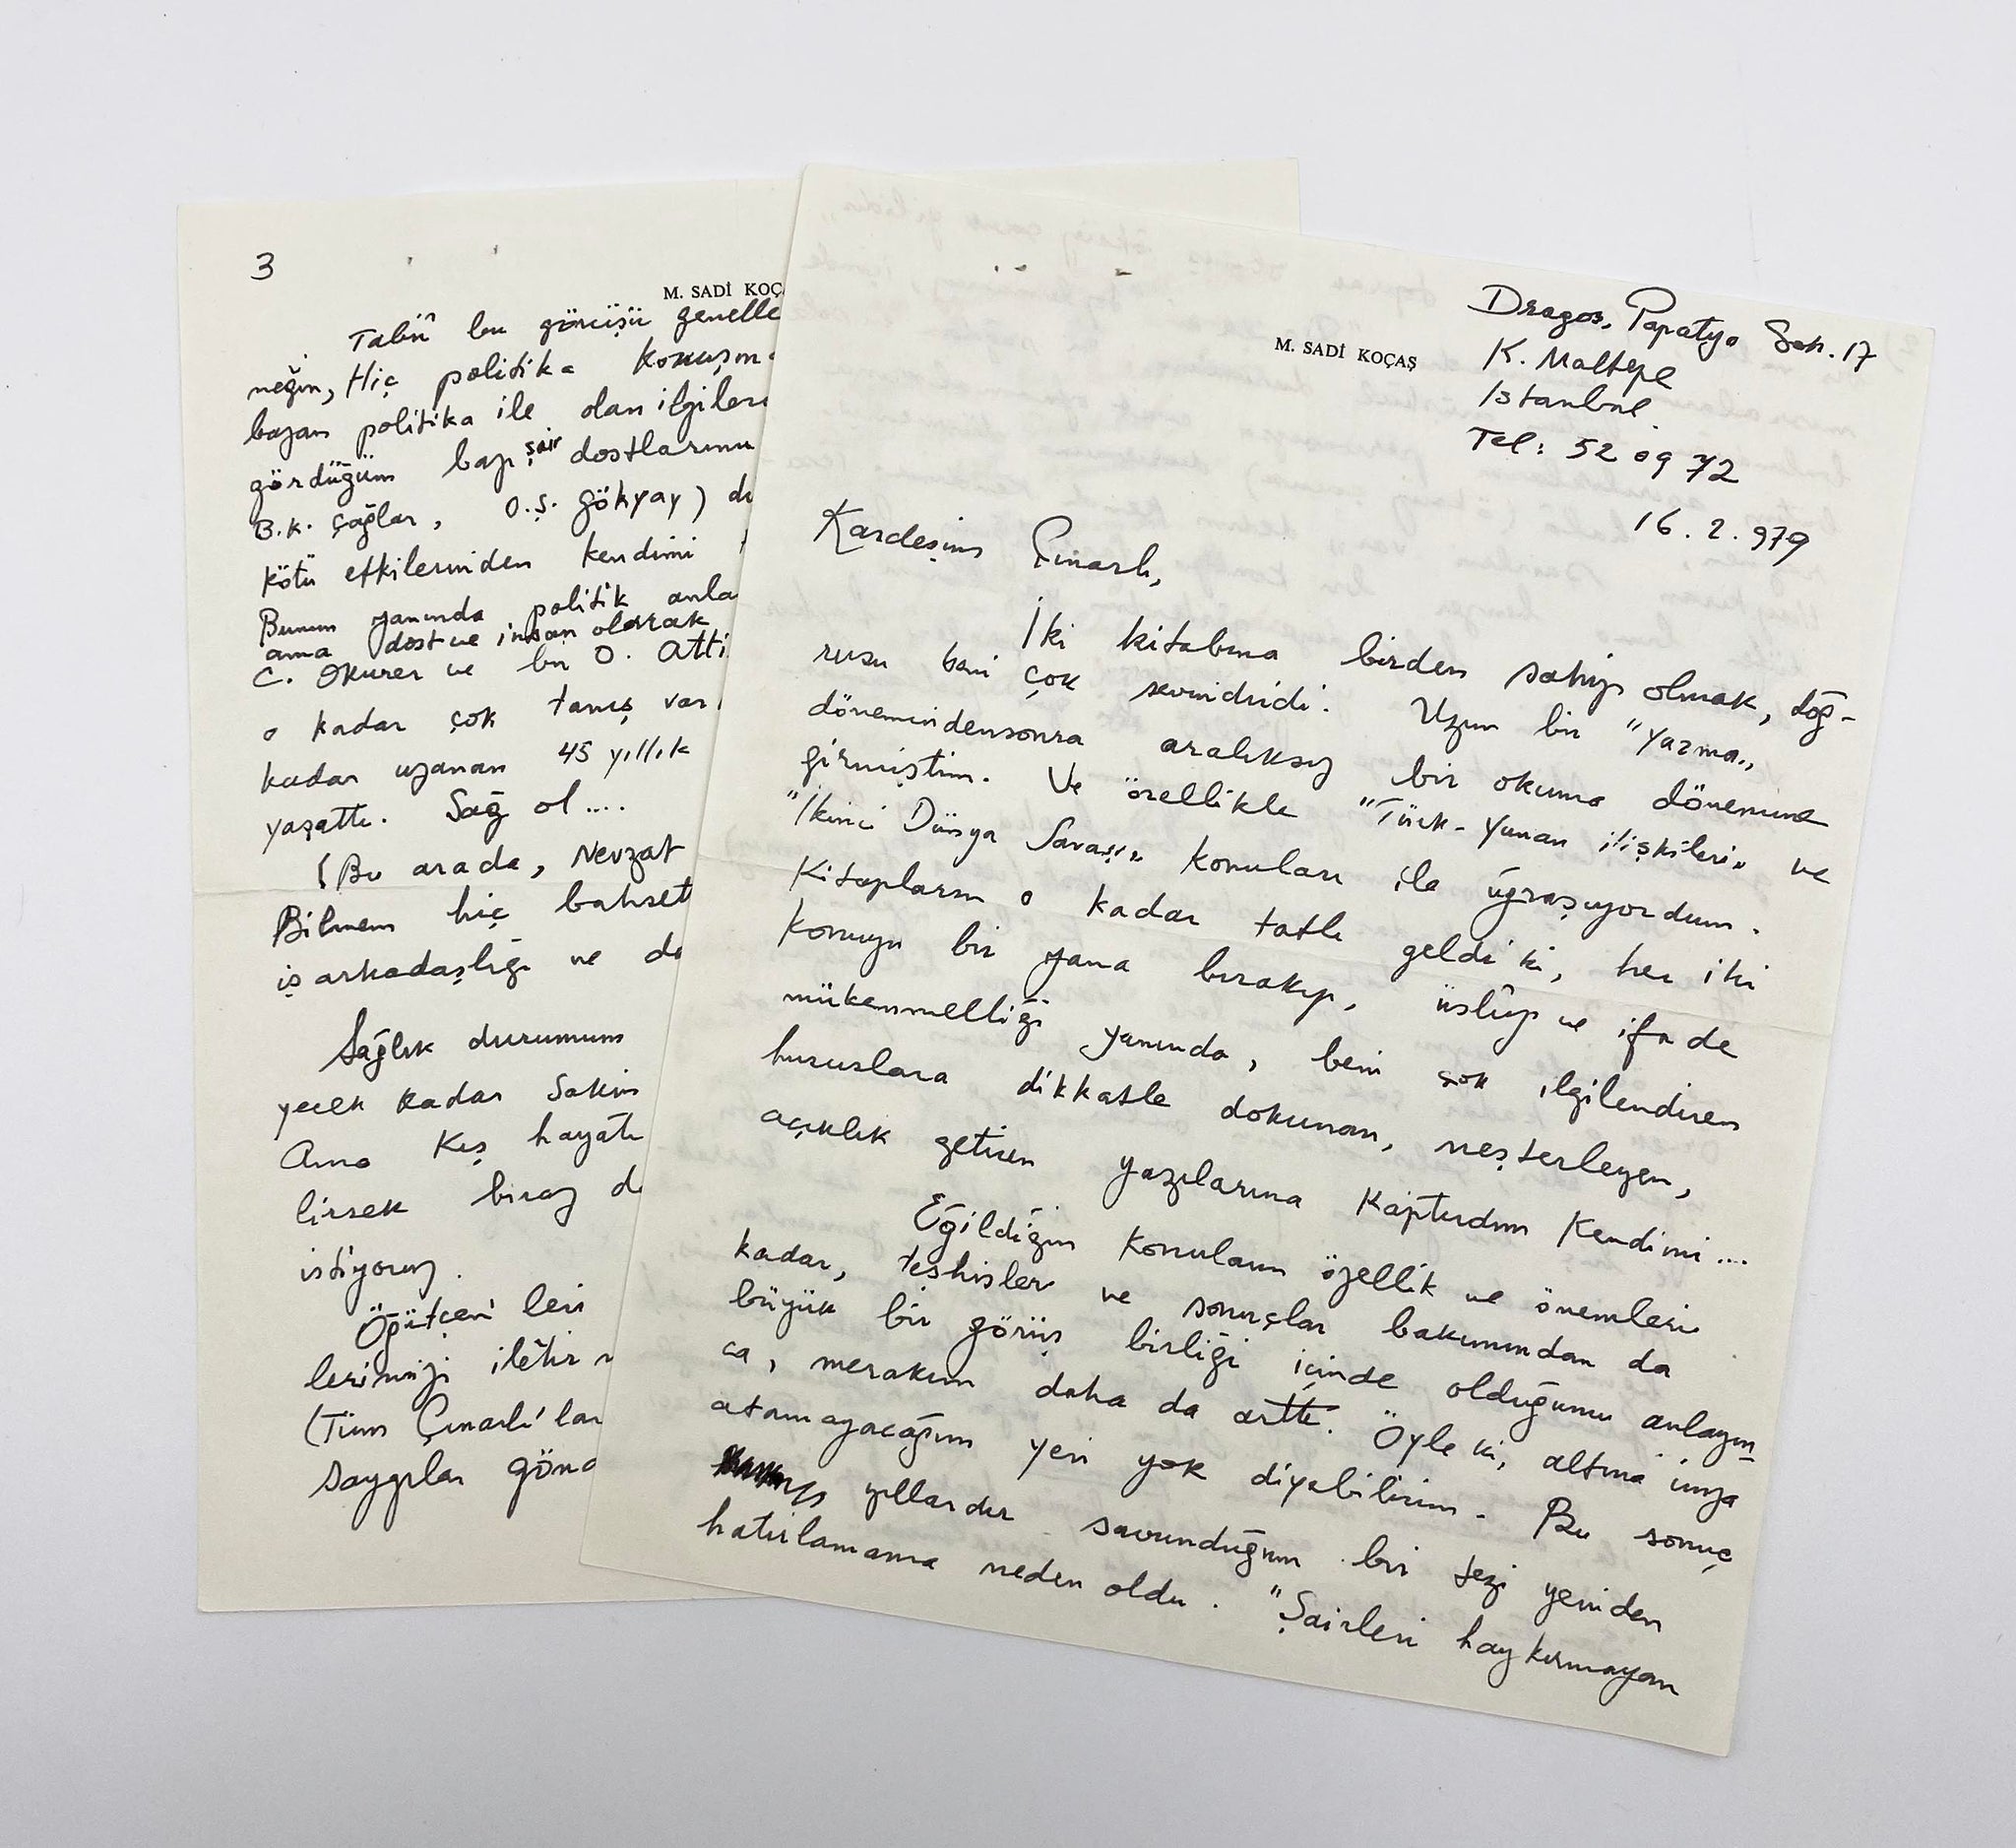 3
M. SADİ KOÇ
Tabiî bu görüşü genelle
neğin, Hiç politika konuşm
bazan politika ile olan ilgileri
gördüğüm bazı şair dostlarımı
B.K. Çağlar, O.Ş. Gökyay) du
kötü etkilerinden kendimi
Bunun yanında politik anla
ama dost ve insan olarak
C. Okurer ve bir O. Atti
o kadar çok tanış var
kadar uzanan 45 yıllık
yaşattı. Sağ ol....
(Bu arada, Nevzat
Bilmem hiç bahset
iş arkadaşlığı ve do
Sağlık durumum
yecek kadar sakin
Ama Kış hayatı
lirsek biraz d
istiyoruz.
Öğütçen'leri
lerimizi iletir
(Tüm Çınarlı'lar
saygılar gönd
M. SADİ KOÇAŞ
Dragos, Papatya Sok. 17
K. Maltepe
Istanbul
Tel: 52 09 72
16.2.979
Kardeşim Çınarlı,
İki kitabına birden sahip olmak, doğ-
rusu beni çok sevindirdi. Uzun bir "yazma"
döneminden sonra aralıksız bir okuma dönemine
girmiştim. Ve özellikle "Türk-Yunan ilişkileri" ve
"İkinci Dünya Savaşı" konuları ile uğraşıyordum.
Kitapların o kadar tatlı geldi ki, her iki
konuyu bir yana bırakıp, üslûp ve ifade
mükemmelliği yanında, beni çok ilgilendiren
hususlara dikkatle dokunan, neşterleyen,
açıklık getiren yazılarına kaptırdım kendimi....
Eğildiğin konuların özellik ve önemleri
kadar, teşhisler ve sonuçlar bakımından da
büyük bir görüş birliği içinde olduğumu anlayın-
ca, merakım daha da arttı. Öyle ki, altına imza
atamayacağım yeri yok diyebilirim. Bu sonuç
yıllardır savunduğum bir tezi yeniden
hatırlamama neden oldu. "Şairleri haykırmayan